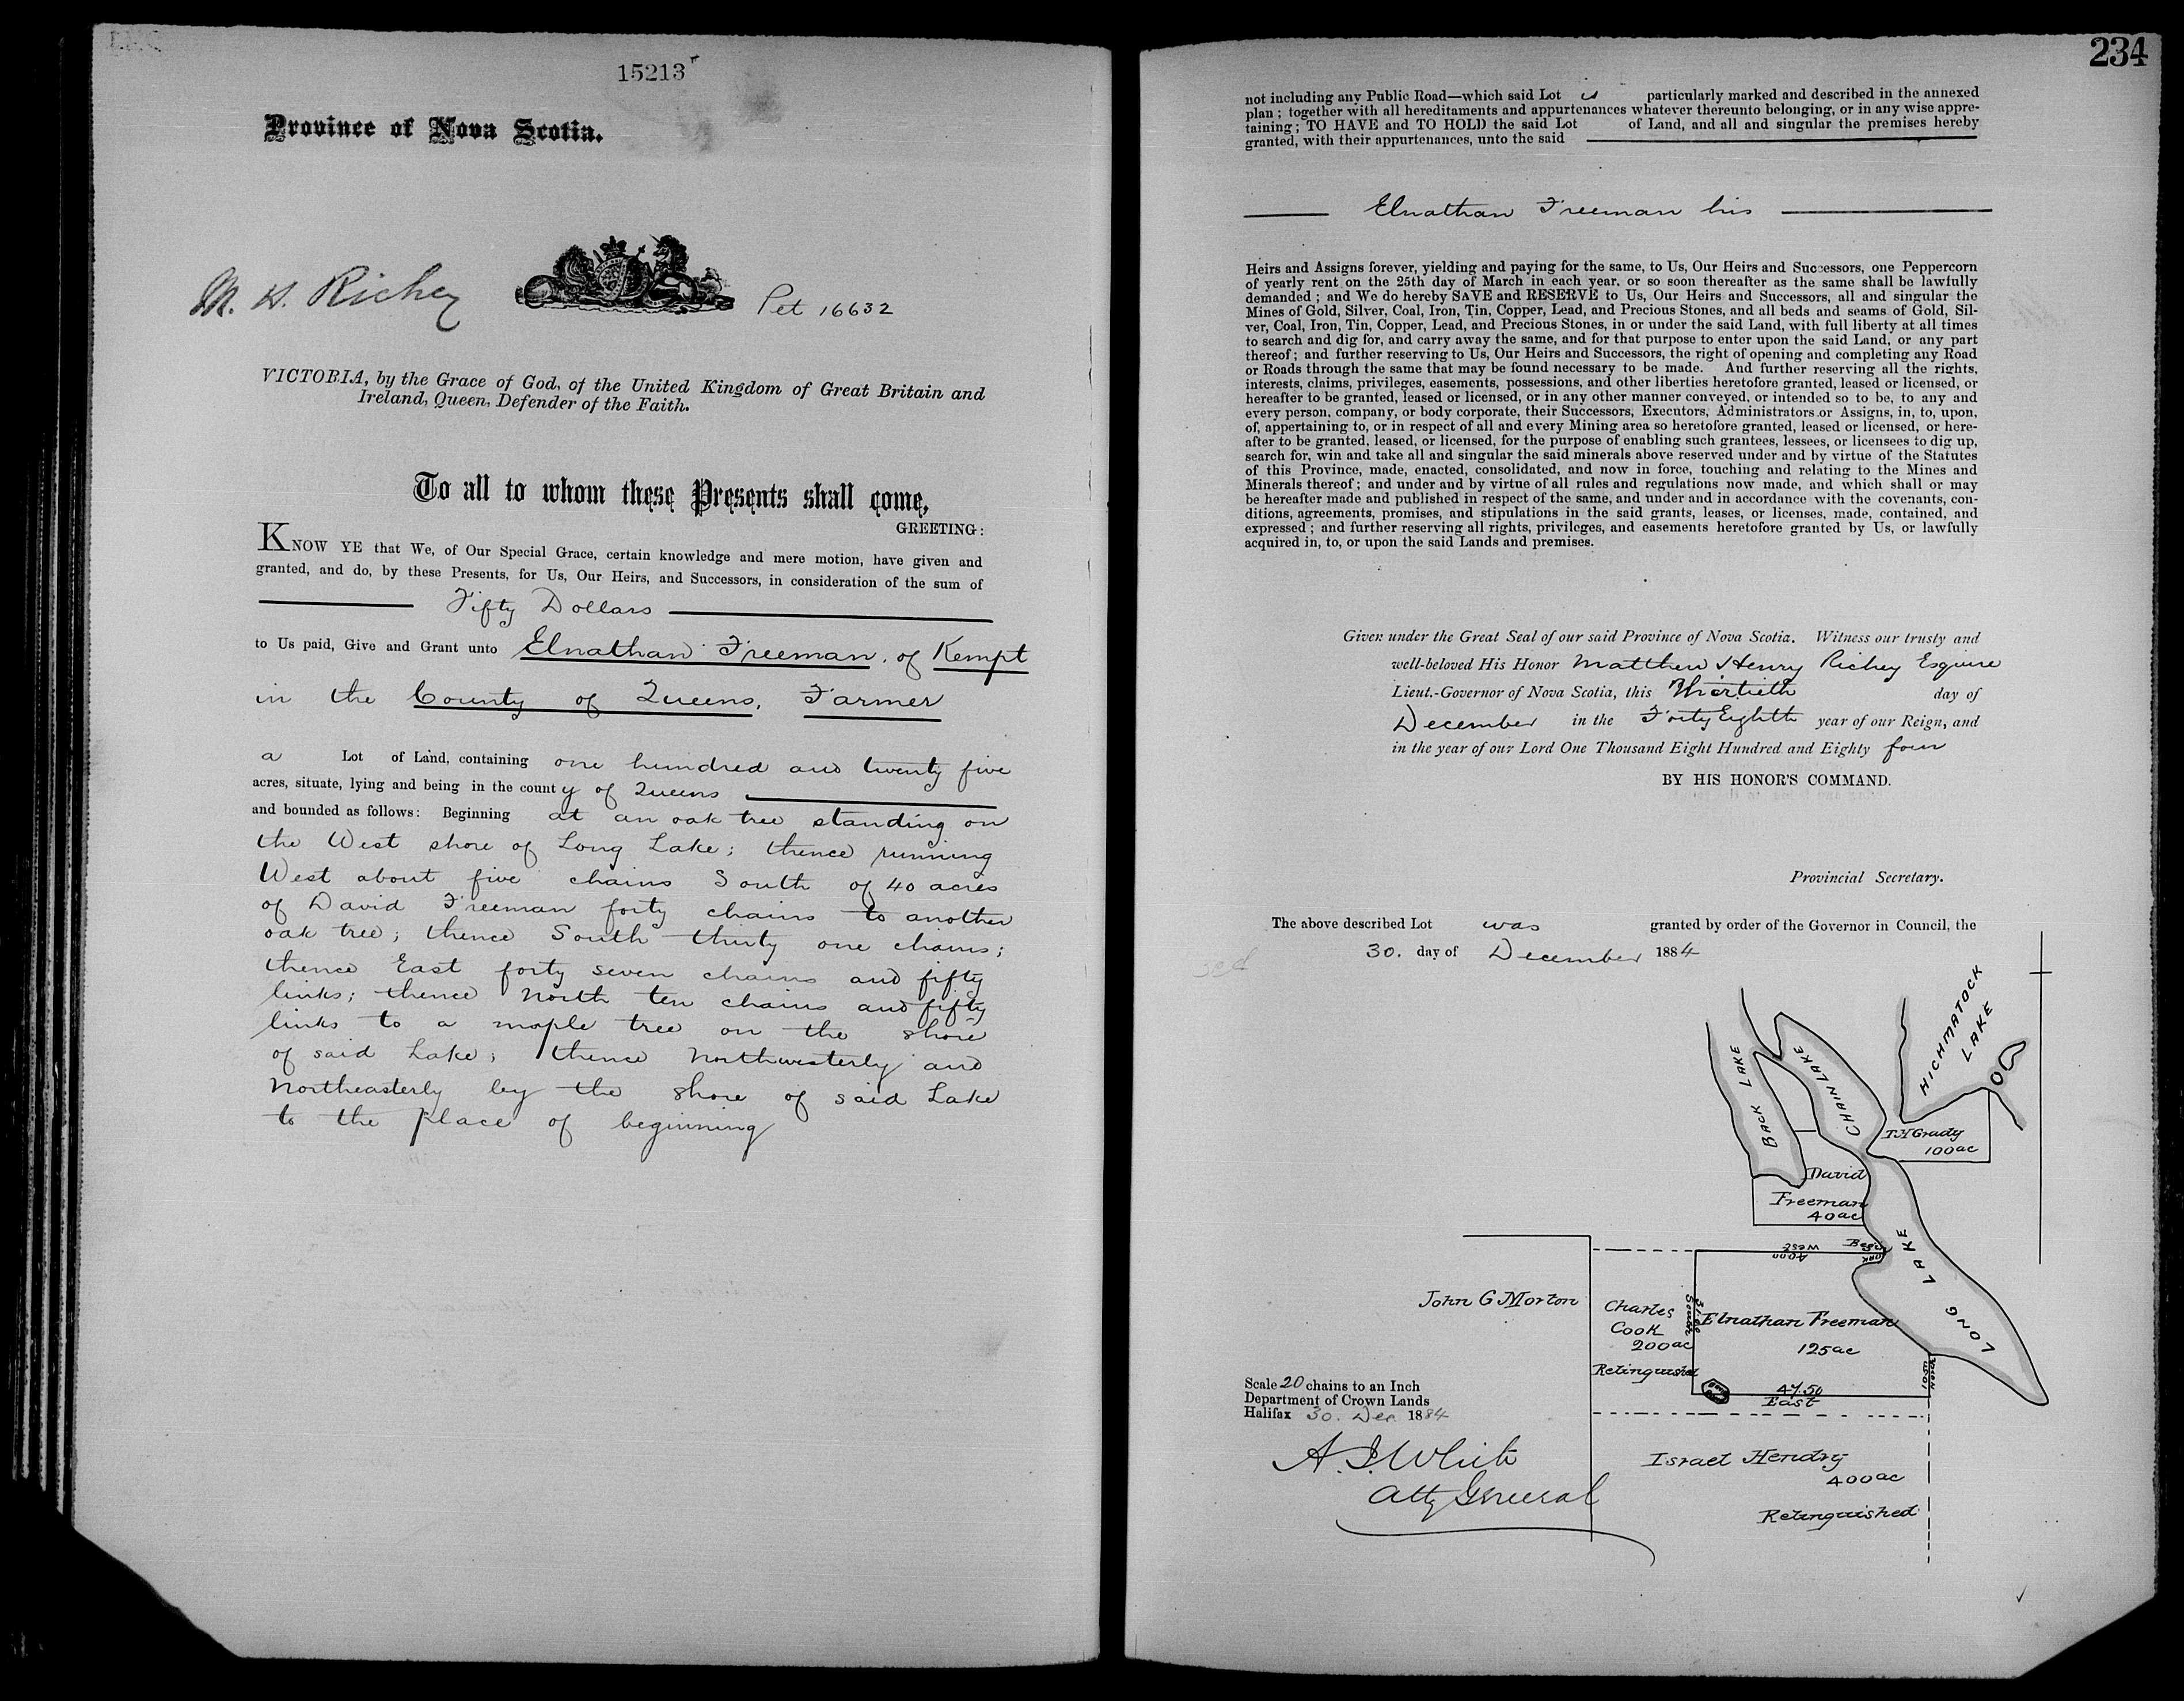 15213
Province of Nova Scotia.
M. H. Richey
Pet 16632
VICTORIA, by the Grace of God, of the United Kingdom of Great Britain and
Ireland, Queen, Defender of the Faith.
To all to whom these Presents shall come,
GREETING:
KNOW YE that We, of Our Special Grace, certain knowledge and mere motion, have given and
granted, and do, by these Presents, for Us, Our Heirs, and Successors, in consideration of the sum of
Fifty Dollars
to Us paid, Give and Grant unto Elnathan Freeman, of Kempt
in the County of Queens, Farmer
a Lot of Land, containing one hundred and twenty five
acres, situate, lying and being in the county of Queens
and bounded as follows: Beginning at an oak tree standing on
the West shore of Long Lake; thence running
West about five chains South of 40 acres
of David Freeman forty chains to another
oak tree; thence South thirty one chains;
thence East forty seven chains and fifty
links; thence North ten chains and fifty
links to a maple tree on the shore
of said Lake; thence Northwesterly and
Northeasterly by the shore of said Lake
to the place of beginning
234
not including any Public Road—which said Lot is particularly marked and described in the annexed
plan; together with all hereditaments and appurtenances whatever thereunto belonging, or in any wise appre-
taining; TO HAVE and TO HOLD the said Lot of Land, and all and singular the premises hereby
granted, with their appurtenances, unto the said
Elnathan Freeman his
Heirs and Assigns forever, yielding and paying for the same, to Us, Our Heirs and Successors, one Peppercorn
of yearly rent on the 25th day of March in each year, or so soon thereafter as the same shall be lawfully
demanded; and We do hereby SAVE and RESERVE to Us, Our Heirs and Successors, all and singular the
Mines of Gold, Silver, Coal, Iron, Tin, Copper, Lead, and Precious Stones, and all beds and seams of Gold, Sil-
ver, Coal, Iron, Tin, Copper, Lead, and Precious Stones, in or under the said Land, with full liberty at all times
to search and dig for, and carry away the same, and for that purpose to enter upon the said Land, or any part
thereof; and further reserving to Us, Our Heirs and Successors, the right of opening and completing any Road
or Roads through the same that may be found necessary to be made. And further reserving all the rights,
interests, claims, privileges, easements, possessions, and other liberties heretofore granted, leased or licensed, or
hereafter to be granted, leased or licensed, or in any other manner conveyed, or intended so to be, to any and
every person, company, or body corporate, their Successors, Executors, Administrators or Assigns, in, to, upon,
of, appertaining to, or in respect of all and every Mining area so heretofore granted, leased or licensed, or here-
after to be granted, leased, or licensed, for the purpose of enabling such grantees, lessees, or licensees to dig up,
search for, win and take all and singular the said minerals above reserved under and by virtue of the Statutes
of this Province, made, enacted, consolidated, and now in force, touching and relating to the Mines and
Minerals thereof; and under and by virtue of all rules and regulations now made, and which shall or may
be hereafter made and published in respect of the same, and under and in accordance with the covenants, con-
ditions, agreements, promises, and stipulations in the said grants, leases, or licenses, made, contained, and
expressed; and further reserving all rights, privileges, and easements heretofore granted by Us, or lawfully
acquired in, to, or upon the said Lands and premises.
Given under the Great Seal of our said Province of Nova Scotia. Witness our trusty and
well-beloved His Honor Matthew Henry Richey Esquire
Lieut.-Governor of Nova Scotia, this Thirtieth day of
December in the Forty Eighth year of our Reign, and
in the year of our Lord One Thousand Eight Hundred and Eighty four
BY HIS HONOR'S COMMAND.
Provincial Secretary.
The above described Lot was granted by order of the Governor in Council, the
30. day of December 1884
HICHMATOCK
LAKE
BACK LAKE
CHAIN LAKE
T H Grady
100 ac
David
Freeman
40 ac
Beg
Oak
West
4000
LONG LAKE
John G Morton
Charles
Cook
200 ac
Relinquished
South
Elnathan Freeman
125 ac
47.50
East
North
1050
Israel Hendry
400 ac
Relinquished
Scale 20 chains to an Inch
Department of Crown Lands
Halifax 30. Dec 1884
A. J. White
Atty General